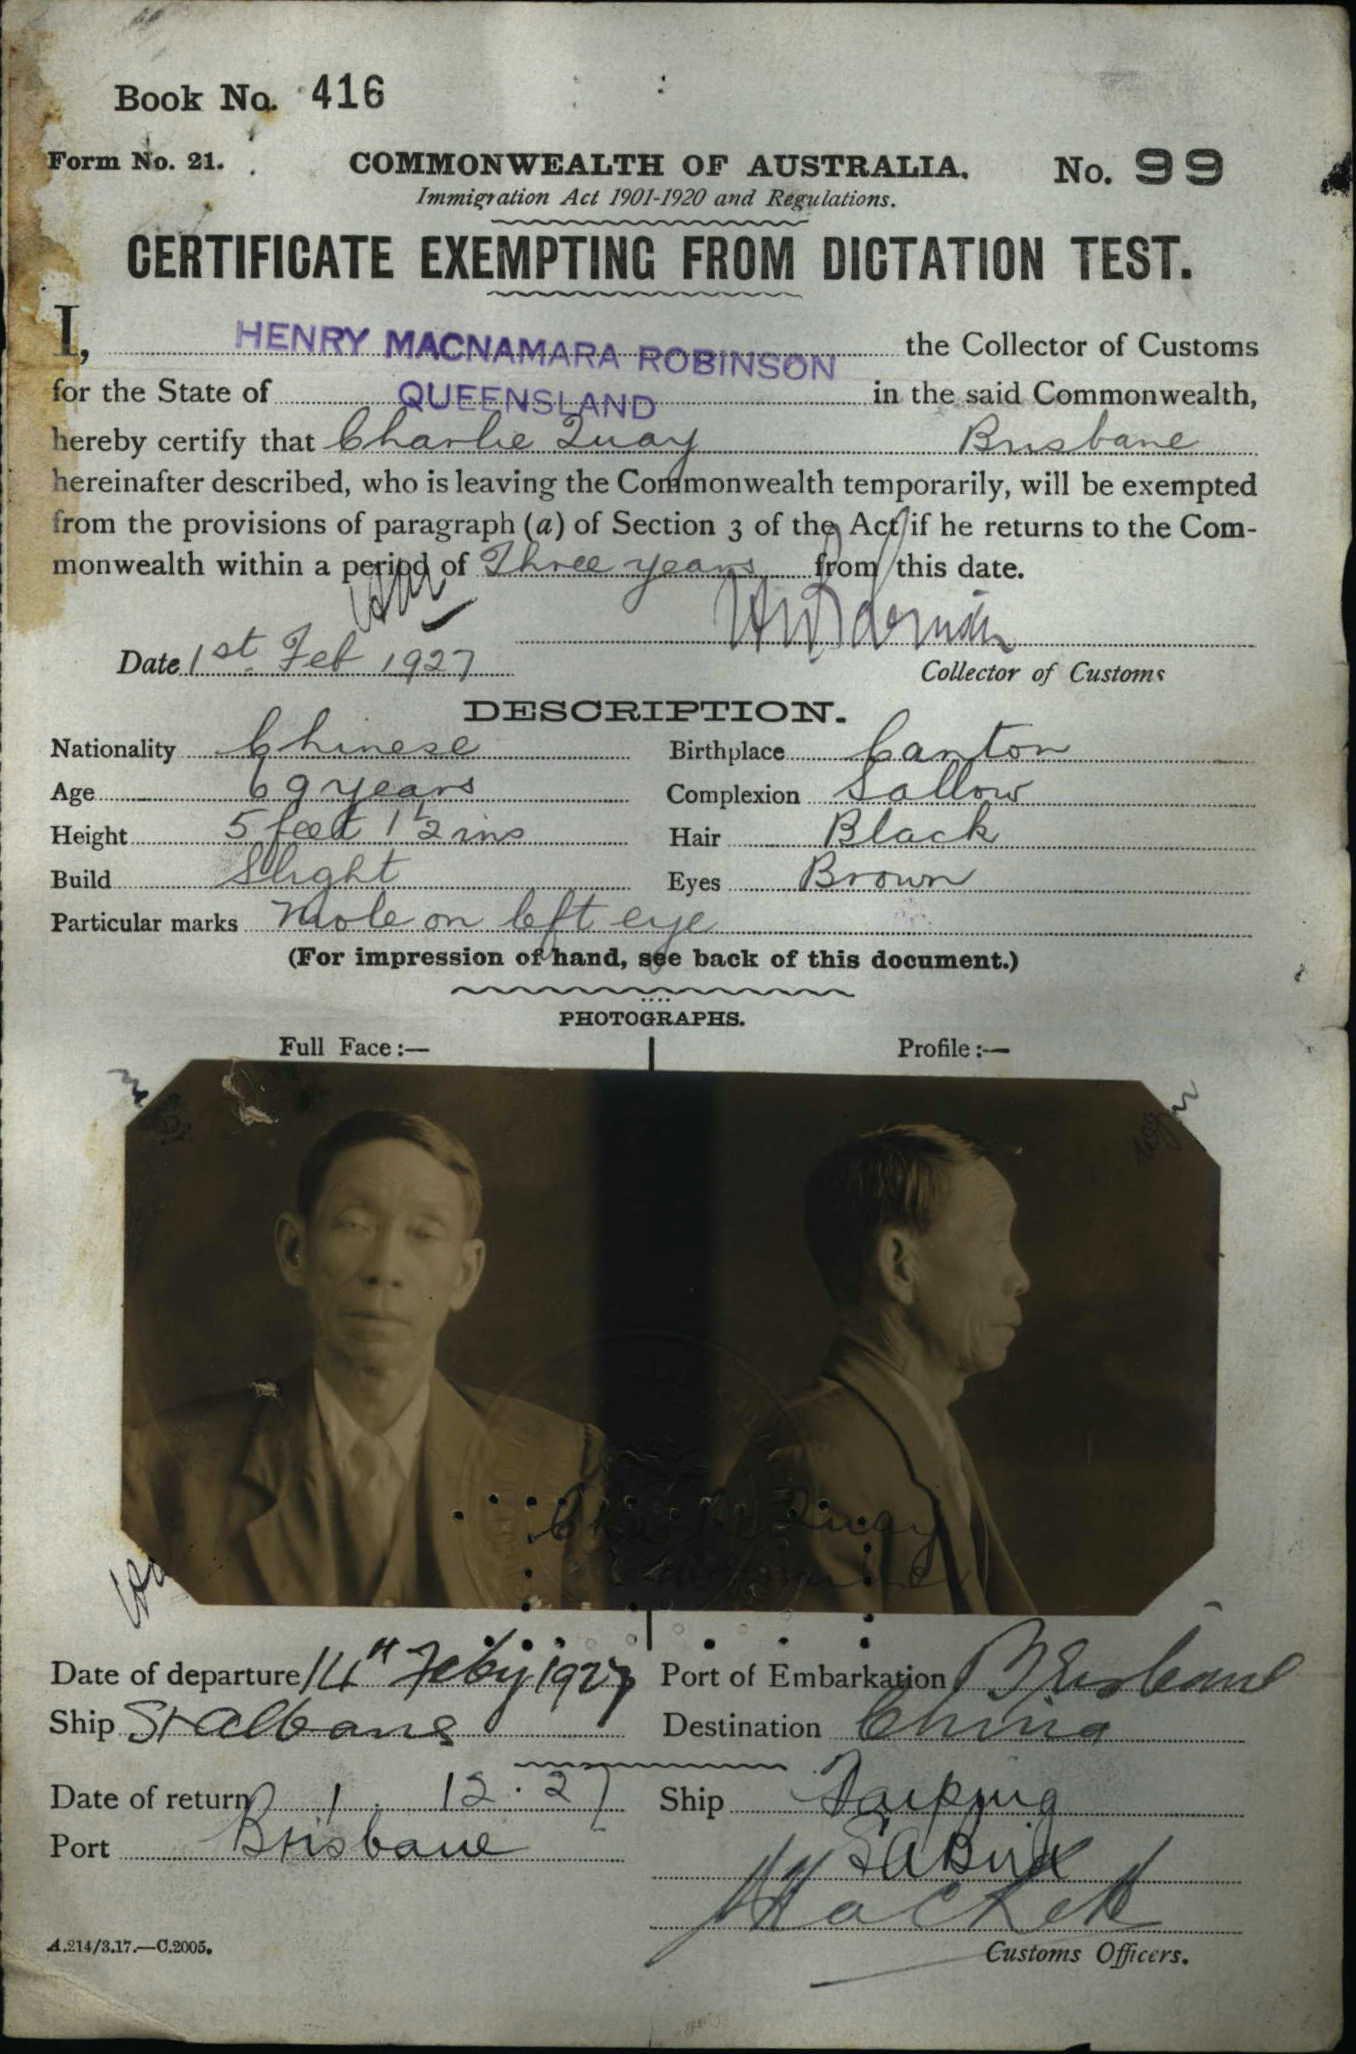 Book No. 416
Form No. 21. COMMONWEALTH OF AUSTRALIA. No. 99
Immigration Act 1901-1920 and Regulations.
CERTIFICATE EXEMPTING FROM DICTATION TEST.
I, HENRY MACNAMARA ROBINSON the Collector of Customs
for the State of QUEENSLAND in the said Commonwealth,
hereby certify that Charlie Quay Brisbane
hereinafter described, who is leaving the Commonwealth temporarily, will be exempted
from the provisions of paragraph (a) of Section 3 of the Act if he returns to the Com-
monwealth within a period of Three years from this date.
Date 1st Feb 1927
Collector of Customs
DESCRIPTION.
Nationality Chinese Birthplace Canton
Age 69 years Complexion Sallow
Height 5 feet 1½ ins Hair Black
Build Slight Eyes Brown
Particular marks Mole on left eye
(For impression of hand, see back of this document.)
PHOTOGRAPHS.
Full Face :— Profile :—
Quay
Date of departure 14th Feby 1927 Port of Embarkation Brisbane
Ship St Albans Destination China
Date of return 1 . 12 . 27 Ship Taiping
Port Brisbane
A.214/3.17.—C.2005. Customs Officers.